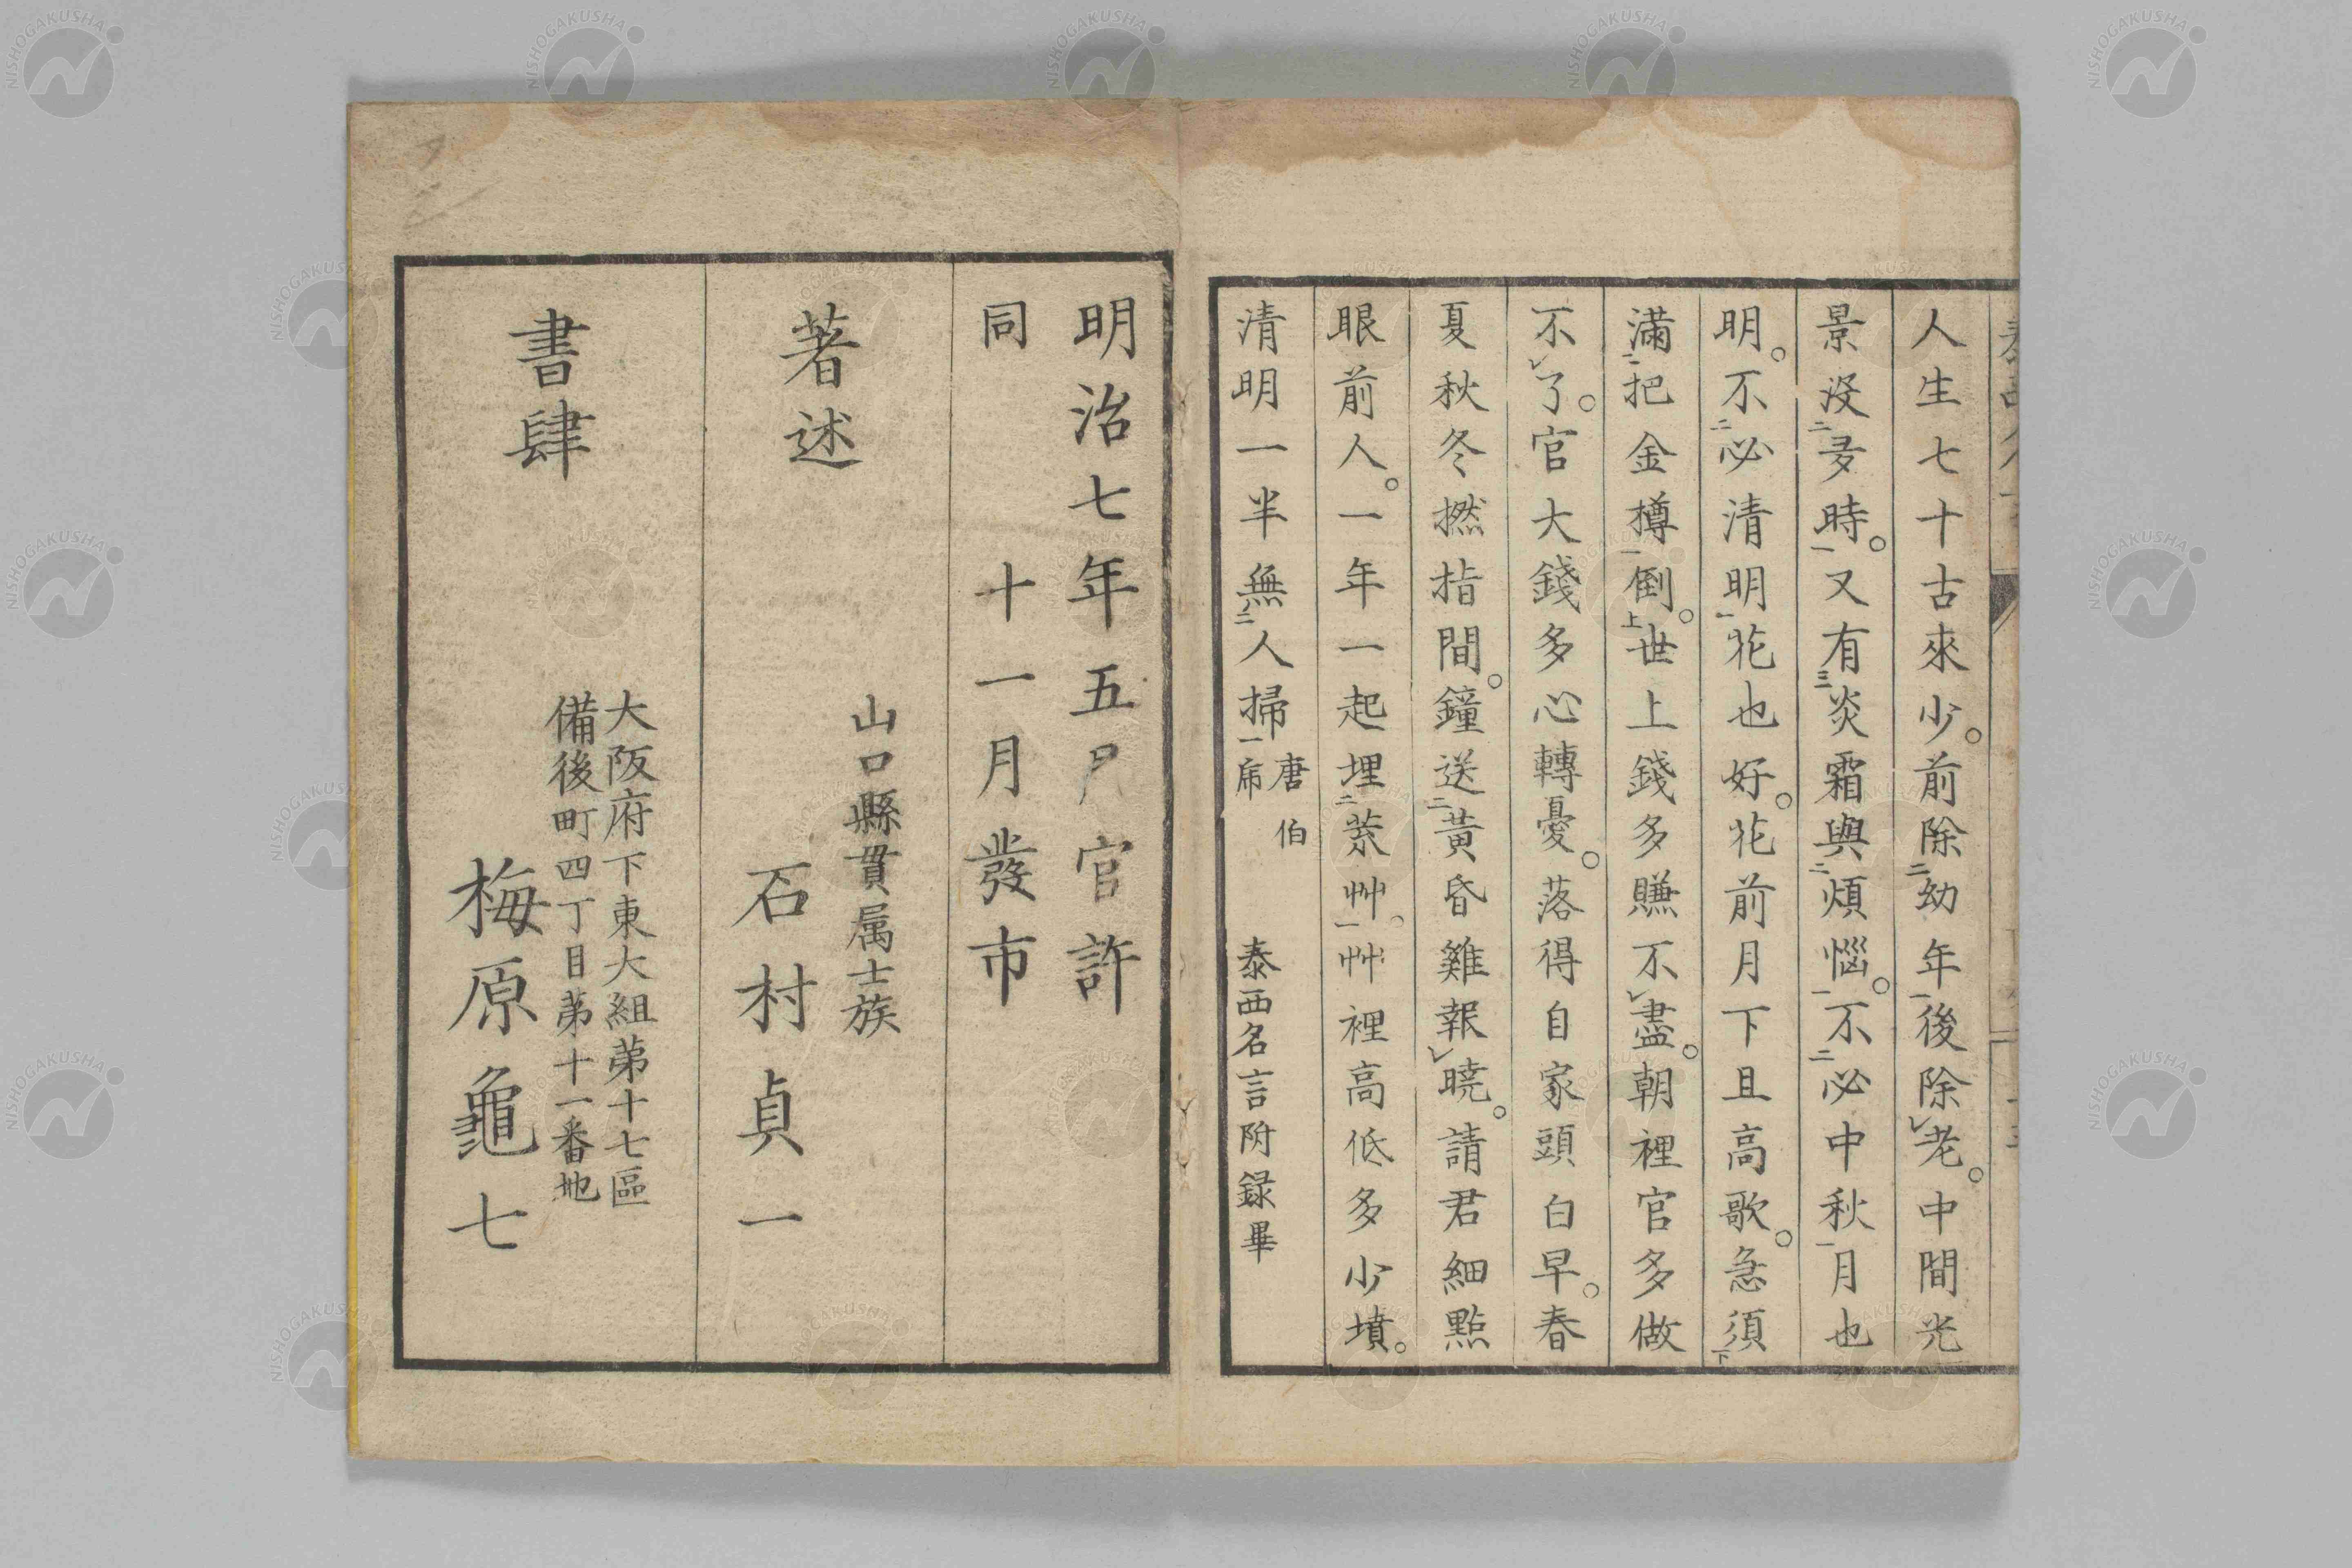 人生七十古來少。前除二幼年一後除レ老。中間光
景沒二多時一。又有三炎霜與二煩惱一。不二必中秋一月也
明。不二必清明一花也好。花前月下且高歌。急須下
滿二把金樽一倒上。世上錢多賺不レ盡。朝裡官多做
不レ了。官大錢多心轉憂。落得自家頭白早。春
夏秋冬撚指間。鐘送二黃昏雞報レ曉。請君細點
眼前人。一年一起埋二荒艸一。艸裡高低多少墳。
清明一半無二人掃一
唐伯
席
泰西名言附録畢
明治七年五月官許
同十一月發市
著述
山口縣貫属士族
石村貞一
書肆
大阪府下東大組苐十七區
備後町四丁目苐十一番地
梅原龜七
NISHOGAKUSHA